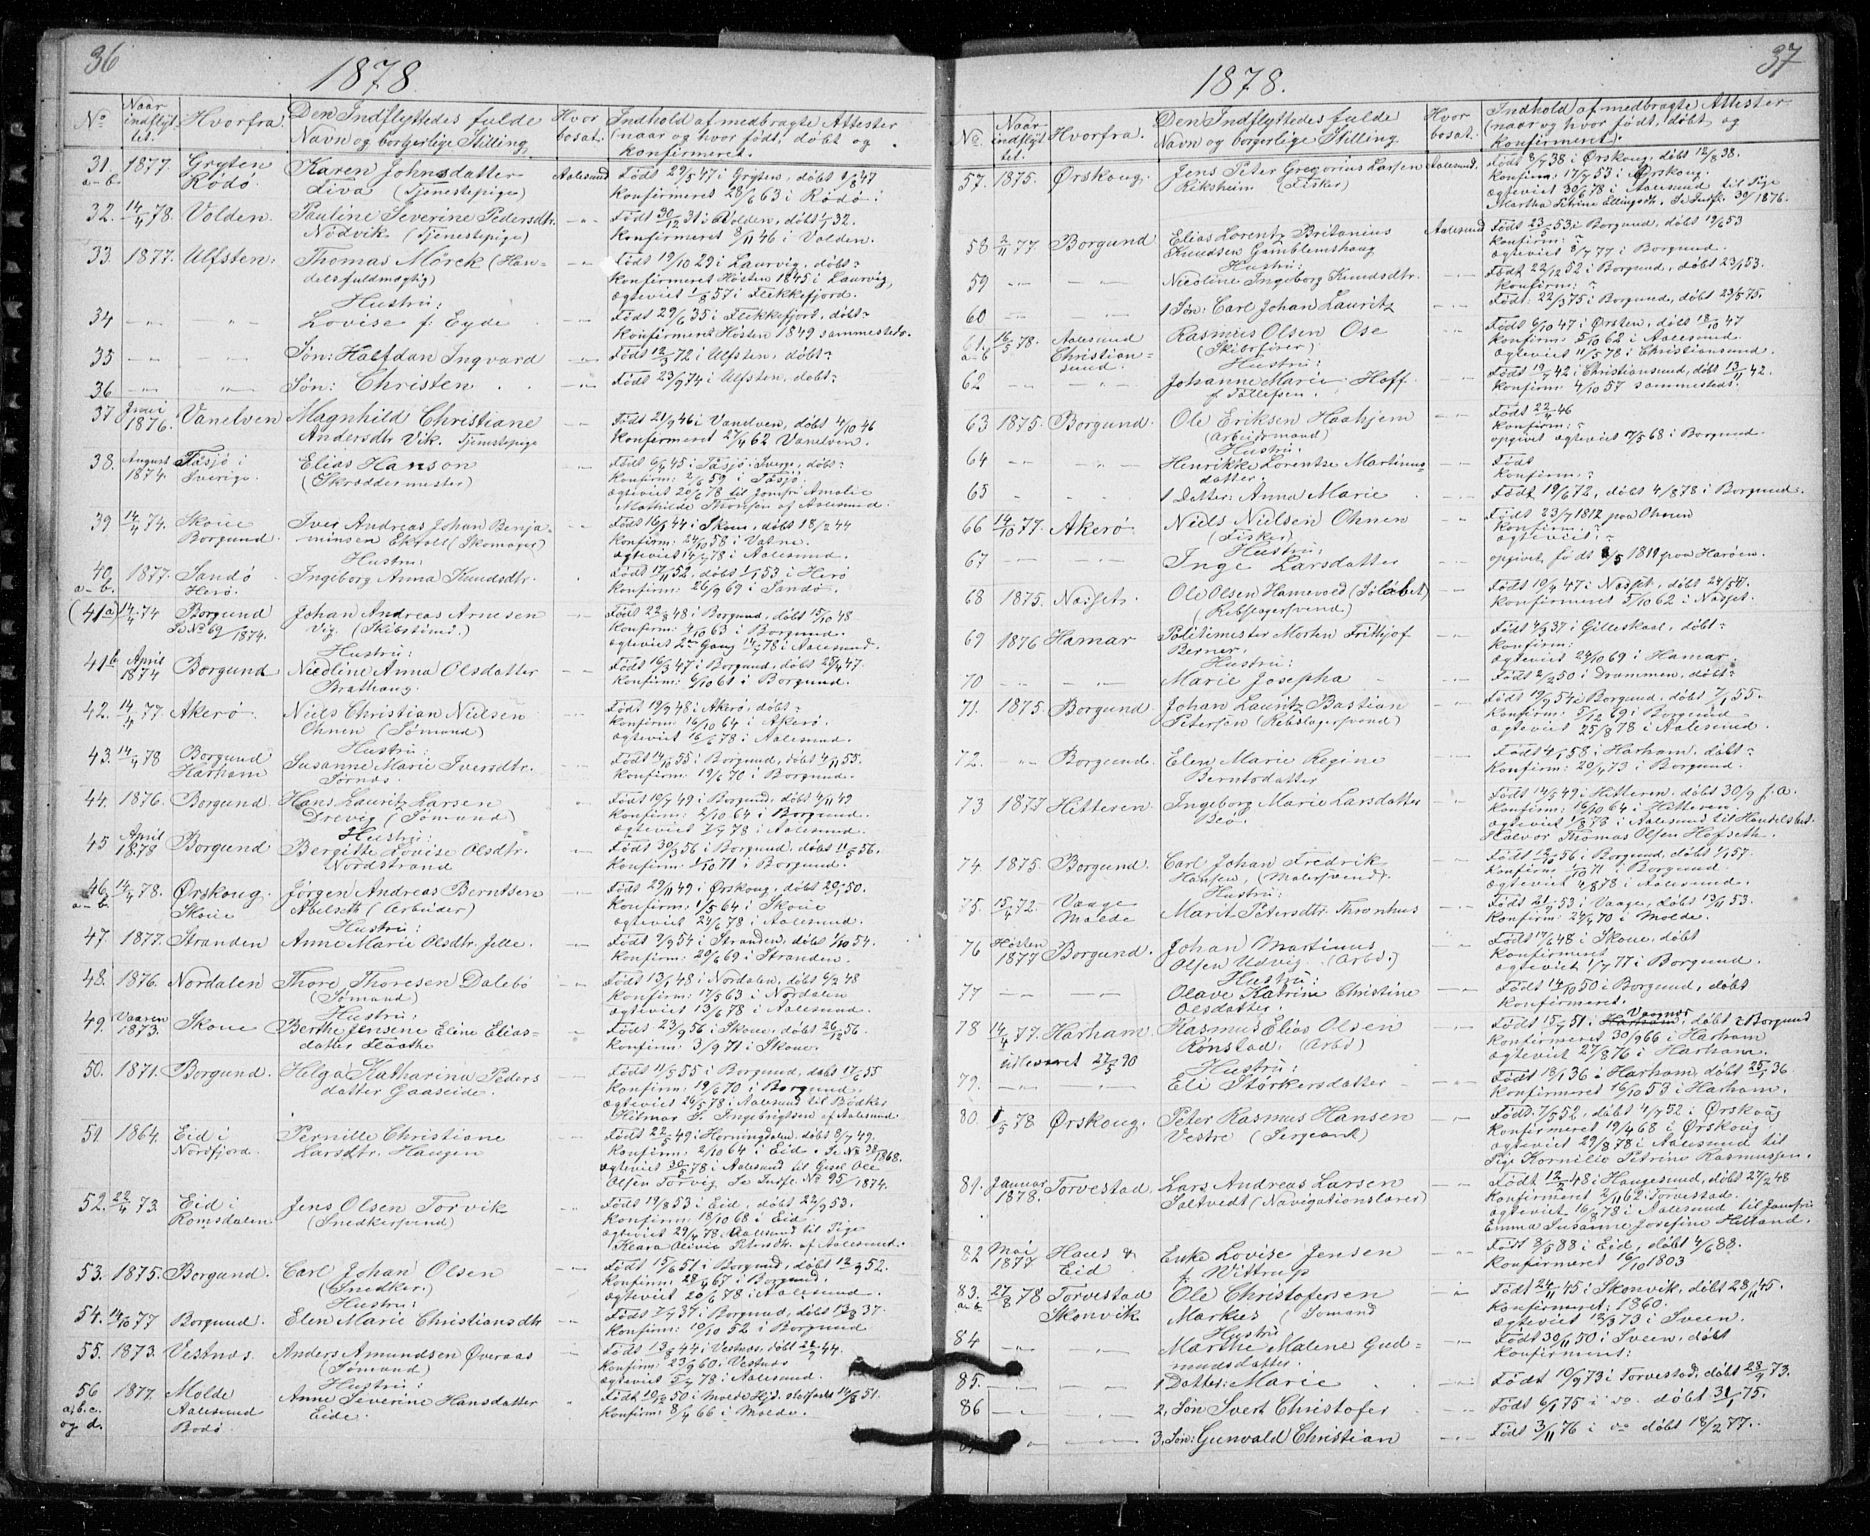 36
1878
No
Naar indflyttet.
Hvorfra.
Den Indflyttedes fulde Navn og borgerlige Stilling.
Hvor bosat.
Indhold af medbragte Attester (naar og hvor født, døbt og konfirmeret.
31. a-b. 1877. Gryten Rødø. Karen Johnsdatter Aalesund Født 29/5 47 i Gryten, døbt 1/8 47
Liva (Tjenestepige) Konfirmeret 28/6 63 i Rødø.
32. 14/4 78. Volden. Pauline Severine Pedersdtr. Født 30/12 31 i Volden, døbt 1/1 32.
Nødvik (Tjenestepige) Konfirmeret 8/11 46 i Volden.
33. 1877. Ulfsten. Thomas Mörck (Han- Født 19/10 29 i Laurvig, døbt-
delsfuldmægtig) Konfirmeret Høsten 1845 i Laurvig,
Hustru: ægteviet 1/8 57 i Flekkefjord.
34 Lovise f. Eyde Født 29/6 35 i Flekkefjort, døbt-
Konfirmeret Høsten 1849 sammesteds.
35 Søn: Halfdan Ingvard Født 12/3 72 i Ulfsten, døbt-
36 Søn: Christen Født 23/9 74 i Ulfsten, døbt-
37 Juni 1876. Vanelven Magnhild Christiane Født 21/9 46 i Vandven, døbt 4/10 46
Andersdtr Vik. Tjenestepige Konfirmeret 27/4 62 Vanelven.
38. August 1874. Tåsjö i Sverige. Elias Hanson Født 6/4 45 i Tåsjö i Sverge, døbt-
(Skræddermester) Konfirm: 2/6 59 i Tåsjö.
ægteviet 20/6 78 til Jomfru Amalie
Mathilde Thomsen af Aalesund.
39 14/4 74. Skoue Borgund. Iver Andreas Johan Benja- Født 16/1 44 i Skoue, døbt 18/2 44
minsen Ekroll (Skomager) Konfirm: 24/10 58 i Vatne.
Hustru: ægteviet 14/7 78 i Aalesund.
40 a-b. 1877. Sandø Herø. Ingeborg Anna Knudsdtr. Født 17/11 52, døbt 1/1 53 i Herø
Konfirm: 26/9 69 i Sandø.
(41a) 14/4 74 Borgund Johan Andreas Arnesen Født 22/8 48 i Borgund, døbt 15/10 48
Se No 69/1874. Vig. (Skibstømr.) Konfirm: 4/10 63 i Borgund.
Hustru: ægteviet 2den Gang 14/7 78 i Aalesund.
41b April 1874 Borgund Nicoline Anna Olsdatter Født 16/3 47 i Borgund, døbt 27/4 47.
Brathaug. Konfirm: 6/10 61 i Borgund.
42. 14/4 77. Akerø. Niels Christian Nielsen Født 19/9 48 i Akerø, døbt-
Ohnen (Sømand) Konfirm: 16/10 64 i Akerø.
Hustru: ægteviet 16/6 78 i Aalesund.
43. 14/4 78 Borgund Harham Susanne Marie Iversdtr. Født 14/10 55 i Borgund, døbt 4/11 55.
Sørnes. Konfirm: 19/6 70 i Borgund.
44. 1876. Borgund. Hans Lauritz Larsen Født 19/7 49 i Borgund, døbt 4/11 49
Drevig (Sømand) Konfirm: 2/10 64 i Borgund.
Hustru: ægteviet 7/7 78 i Aalesund.
45 April 1878 Borgund Bergitte Lovise Olsdtr. Født 30/3 56 i Borgund, døbt 11/5 56.
Nordstrand Konfirm: 1/10 71 i Borgund.
46. a-b. 14/4 78. Ørskoug. Skoue Jørgen Andreas Berntsen Født 29/11 49 i Ørskoug, døbt 20/1 50.
Abelseth (Arbeider) Konfirm: 1/5 64 i Skoue
Hustru: ægteviet 24/6 78 i Aalesund.
47. 1877. Stranden Anne Marie Olsdtr. Jelle. Født 9/9 54 i Stranden, døbt 1/10 54.
Konfirm: 29/6 69 i Stranden.
48. 1876. Nordalen Thore Thoresen Dalebø Født 13/1 48 i Nordalen, døbt 6/2 48
(Sømand) Konfirm: 17/5 63 i Nordalen
Hustru: ægteviet 13/6 78 i Aalesund.
49. Vaaren 1873. Skoue Berthe Jensine Eline Elias- Født 23/9 56 i Skoue, døbt 26/12 56.
datter Haathe Konfirm: 3/9 71 i Skoue.
50. 1871. Borgund. Helga Katharina Peders Født 11/5 55 i Borgund, døbt 17/6 55
datter Gaaseide. Konfirm: 19/6 70 i Borgund.
ægteviet 26/5 78 i Aalesund til Bødker
Hilmar S. Ingebrigtsen af Aalesund.
51 1864. Eid i Nordfjord. Pernille Christiane Født 22/5 49 i Horningdalen, døbt 8/7 49.
Larsdtr. Haugen Konfirm: 2/10 64 i Eid. Se No 38/1868.
ægteviet 30/5 78 i Aalesund til Gesel Ole
Olsen Torvig. Se Indfl. No 95/1874.
52. 22/4 73. Eid i Romsdalen. Jens Olsen Torvik Født 19/8 53 i Eid, døbt 22/9 53.
(Snedkersvend) Konfirm: 18/10 68 i Eid.
ægteviet 29/4 78 i Aalesund til Pige
Klara Olivia Petersdtr. af Aalesund.
53. 1875. Borgund. Carl Johan Olsen Født 15/6 51 i Borgund, døbt 12/9 52.
(Snedker.) Konfirm: 28/4 67 i Borgund.
Hustru: ægteviet 20/6 78 i Aalesund.
54. 14/10 77 Borgund. Elen Marie Christiansdtr Født 7/7 37 i Borgund, døbt 13/8 37.
Konfirm: 10/10 52 i Borgund
55. 1873. Vestnæs. Anders Amundsen Øveraas Født 13/8 44 i Vestnæs, døbt 22/9 44.
(Sømand) Konfirm: 23/9 60. i Vestnæs
Hustru: ægteviet 5/7 78 i Aalesund.
56 a,b,c. og d. 1877. Molde Aalesund Bodø. Anne Severine Hansdatter Født 19/12 50 i Molde Hjd. stadfæstet 14/8 51.
Eide. Konfirm: 8/4 66 i Molde.
37
1878.
No.
Naar indflyttet.
Hvorfra.
Den Indflyttedes fulde Navn og borgerlige Stilling.
Hvor bosat.
Indhold af medbragte Attester (naar og hvor født, døbt og Konfirmeret.
57. 1875. Ørskoug. Jens Peter Gregorius Larsen Aalesund. Født 8/7 38 i Ørskoug, døbt 12/8 38.
Riksheim (Fisker) Konfirm. 17/7 53 i Ørskoug.
ægteviet 30/6 78 i Aalesund til Pige
Martha Petrine Ellingsdtr. Se Indfl. 39/1876.
58 2/11 77 Borgund Elias Lorentz Britanius Aalesund Født 23/5 53 i Borgund, døbt 19/6 53
Knudsen Gamblemshaug Konfirm: -
Hustru: ægteviet 8/7 77 i Borgund.
59 Nicoline Ingeborg Knudsdtr. Født 22/12 52 i Borgund, døbt 23/1 53.
Konfirm: -
60 1 Søn: Carl Johan Lauritz Født: 22/3 75 i Borgund, døbt 23/5 75.
61. a-b 16/5 78. Aalesund Christiansund. Rasmus Olsen Ose Født 6/10 47 i Ørsten, døbt 18/10 47
(Skibsfører) Konfirm: 5/10 62 i Aalesund.
Hustru: ægteviet 11/5 78 i Christiansund.
62 Johanne Marie Hoff Født 19/7 42 i Christiansund, døbt 13/11 42.
f. Tollefsen. Konfirm 4/10 57 sammesteds.
63 1875. Borgund. Ole Eriksen Haahjem Født 22/4 46
(Arbeidsmand) Konfirm: -
Hustru. opgivet ægteviet 17/5 68 i Borgund.
64 Henrikke Lorentse Martinus- Født
datter. Konfirm: -
65 1 Datter: Anna Marie Født 19/6 72, døbt 4/8 78 i Borgund.
66 14/10 77. Akerø. Niels Nielsen Ohnen Født 23/7 1812 paa Ohnen
(Fisker) Konfirm: -
Hustru; ægteviet: -
67 Inge Larsdatter opgivet, født 8/5 1811 paa Harøen.
68 1875. Næsset. Ole Olsen Hamervold (Søløbet) Født 19/4 47 i Næsset, døbt 24/5 47.
(Rebslagersvend) Konfirmeret 5/10 62 i Næsset.
69 1876 Hamar Politimester Morten Frithjof Født 4/9 37 i Gilleskaal, døbt-
Berner. Konfirm:
Hustru: ægteviet 24/10 69 i Hamar.
70 Marie Josepha Født 2/2 50 i Drammen, døbt-
71. 1875. Borgund. Johan Lauritz Bastian Født 19/9 54 i Borgund, døbt 7/1 55.
Petersen (Rebslagersvend) Konfirm: 5/12 69 i Borgund
ægteviet 25/8 78 i Aalesund.
72. Borgund. Elen Marie Regine Født 4/1 58 i Harham, døbt-
Berntsdatter Konfirm: 20/4 73 i Borgund.
73 1877 Hitteren. Ingeborg Marie Larsdatter Født 14/6 49 i Hitteren, døbt 30/9 s.a.
Beø. Konfirm: 16/10 64 i Hitteren.
ægteviet 1/8 78 i Aalesund til Handelsbet.
Halvor Thomas Olsen Hofseth.
74. 1875. Borgund. Carl Johan Fredrik Født 12/10 56 i Borgund, døbt 1/1 57.
Hansen, (Malersvend). Konfirm: 1/10 71 i Borgund
Hustru: ægteviet 4/8 78 i Aalesund.
75. 15/4 72. Vaage Molde Marit Petersdtr. Thronhus Født 21/9 53 i Vaage, døbt 13/11 53.
Konfirm: 24/4 70 i Molde.
76 Høsten 1877 Borgund. Johan Martinus Født 17/6 48 i Skoue, døbt
Olsen Udvig. (Arbd:) Konfirmeret
Hustru: ægteviet 1/7 77 i Borgund.
77 Olave Katrine Christine Født 14/10 50 i Borgund, døbt
Olsdatter. Konfirmeret.
78 14/4 77. Harham. Rasmus Elias Olsen Født 15/7 51. Harham Vaagnæs, døbt i Borgund
Rønstad. (Arbd) Konfirmeret 30/9 66 i Harham
udleveret 27/5 90 Hustru: ægteviet 27/8 76 i Harham.
79. Eli Størkersdatter Født 18/1 36 i Harham, døbt 25/1 36.
Konfirmeret 16/10 53 i Harham.
80. 1/5 78 Ørskoug. Peter Rasmus Hansen Født. 7/5 52, døbt 4/7 52 i Ørskoug
Vestre (Sergeant) Konfirmeret 19/4 68 i Ørskoug
ægteviet 29/8 78 i Aalesund til
Pige Kornilie Petrine Rasmussen.
81. Januar 1878. Torvestad. Lars Andreas Larsen Født 12/2 48 i Haugesund, døbt 27/2 48
Saltvedt (Navigationslærer) Konfirmeret 2/11 62 Torvestad.
ægteviet 16/8 78 i Aalesund til Jomfru
Emma Susanne Josefine Hilland.
82 Mai 1877 Haus & Eid Enke Lovise Jensen Født 8/5 88 i Eid, døbt 4/6 88.
f. Wittrup Konfirmeret 16/10 1803
83. a-b. 27/8 78 Torvestad Skonvik Ole Christofersen Født 24/11 45 i Skonvik, døbt 28/11 45.
Markus (Sømand Konfirmeret: 1860.
Hustru ægteviet 12/3 73 i Sveen.
84 Marthe Malene Gud- Født 30/11 50 i Sveen, døbt
mundsdatter. Konfirmeret:
85. 1 Datter: Marie Født 19/9 73 i Torvestad, døbt 28/9 73.
86 2, Søn Svert Christofer Født 6/1 75 i do døbt 31/1 75.
3, Søn: Gunvald Christian Født 3/11 76 i do døbt 18/2 77.